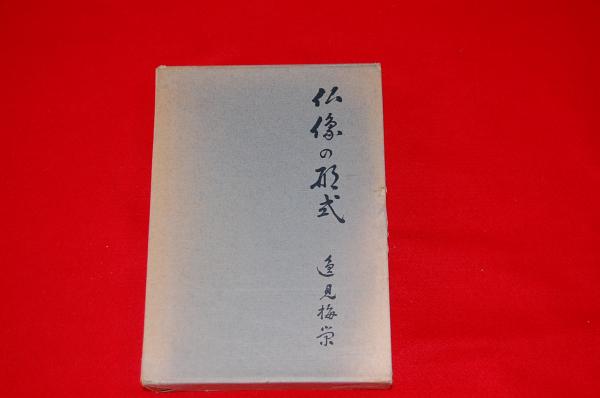 仏像の形式
逸見梅栄